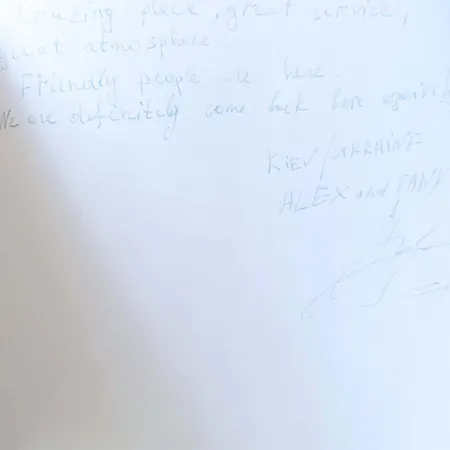 Amazing place, great service,
great atmosphere.
Friendly people are here.
We are definitily come back here again!
KIEV/UKRAINE
ALEX and